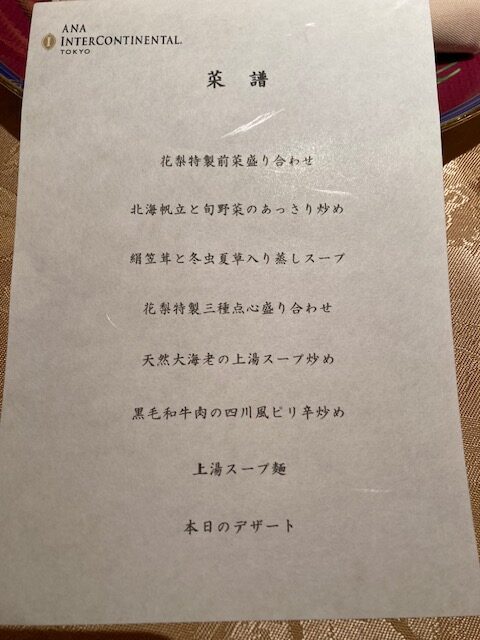 ANA
INTERCONTINENTAL®
TOKYO
菜譜
花梨特製前菜盛り合わせ
北海帆立と旬野菜のあっさり炒め
絹笠茸と冬虫夏草入り蒸しスープ
花梨特製三種点心盛り合わせ
天然大海老の上湯スープ炒め
黒毛和牛肉の四川風ピリ辛炒め
上湯スープ麺
本日のデザート